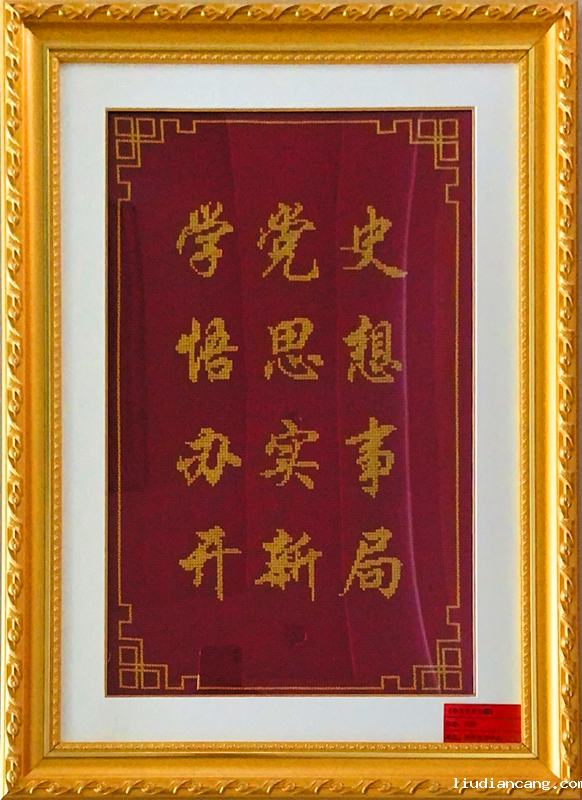 学党史
悟思想
办实事
开新局
liudiancang.com